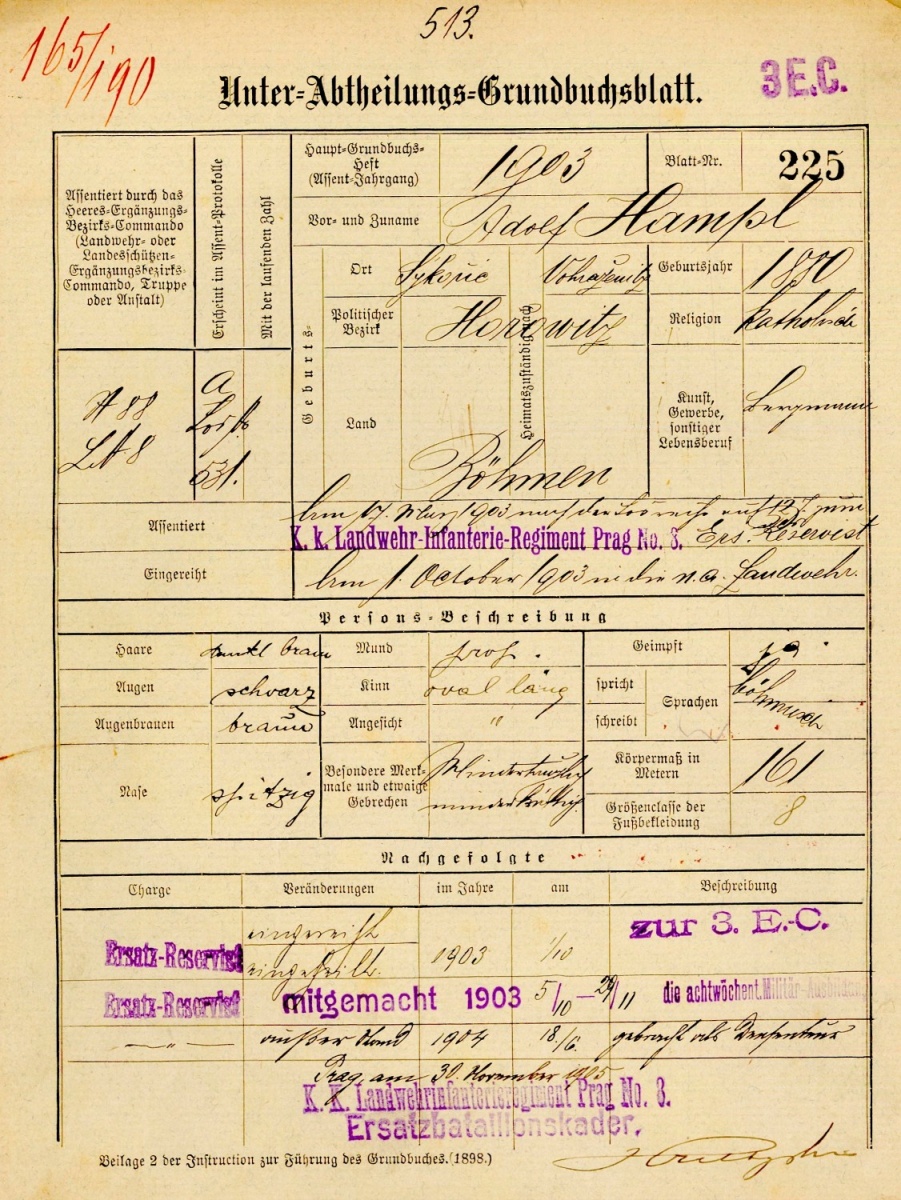 513.
165/190
Unter-Abtheilungs-Grundbuchsblatt.
3 E.C.
Assentiert durch das
Heeres-Ergänzungs-
Bezirks-Commando
(Landwehr- oder
Landesschützen-
Ergänzungsbezirks-
Commando, Truppe
oder Anstalt)
Erscheint im Assent-Protokolle
Mit der laufenden Zahl
Haupt-Grundbuchs-
Heft
(Assent-Jahrgang)
1903
Blatt-Nr.
225
Vor- und Zuname
Adolf Hampl
Geburts-
Ort
Heimatszuständig nach
Geburtsjahr
1880
Politischer
Bezirk
Horowitz
Religion
katholisch
Land
Böhmen
Kunst,
Gewerbe,
sonstiger
Lebensberuf
Bergmann
88
8
A
531.
Assentiert
Am 17. März 1903 nach der Losreihe auf 12 J. zum
K. k. Landwehr-Infanterie-Regiment Prag No. 8.
Ers. Reservist
Eingereiht
Am 1. October 1903 in die n. a. Landwehr.
Persons-Beschreibung
Haare
dunkl braun
Augen
schwarz
Augenbrauen
braun
Nase
spitzig
Mund
prop.
Kinn
oval läng
Angesicht
"
Besondere Merk-
male und etwaige
Gebrechen
Mindertauglich
minderkräftig
Geimpft
ja
spricht
schreibt
Sprachen
böhmisch
Körpermaß in
Metern
161
Größenclasse der
Fußbekleidung
8
Nachgefolgte
Charge
Veränderungen
im Jahre
am
Beschreibung
Ersatz-Reservist
eingereiht
eingetheilt.
1903
1/10
zur 3. E.-C.
Ersatz-Reservist
mitgemacht 1903
5/10 – 29/11
die achtwöchent. Militär-Ausbildung
– " –
außer Stand
1904
18/6.
gebracht als
Prag am 30. November 1905
K. K. Landwehrinfanterieregiment Prag No. 8.
Ersatzbataillonskader.
Beilage 2 der Instruction zur Führung des Grundbuches. (1898.)